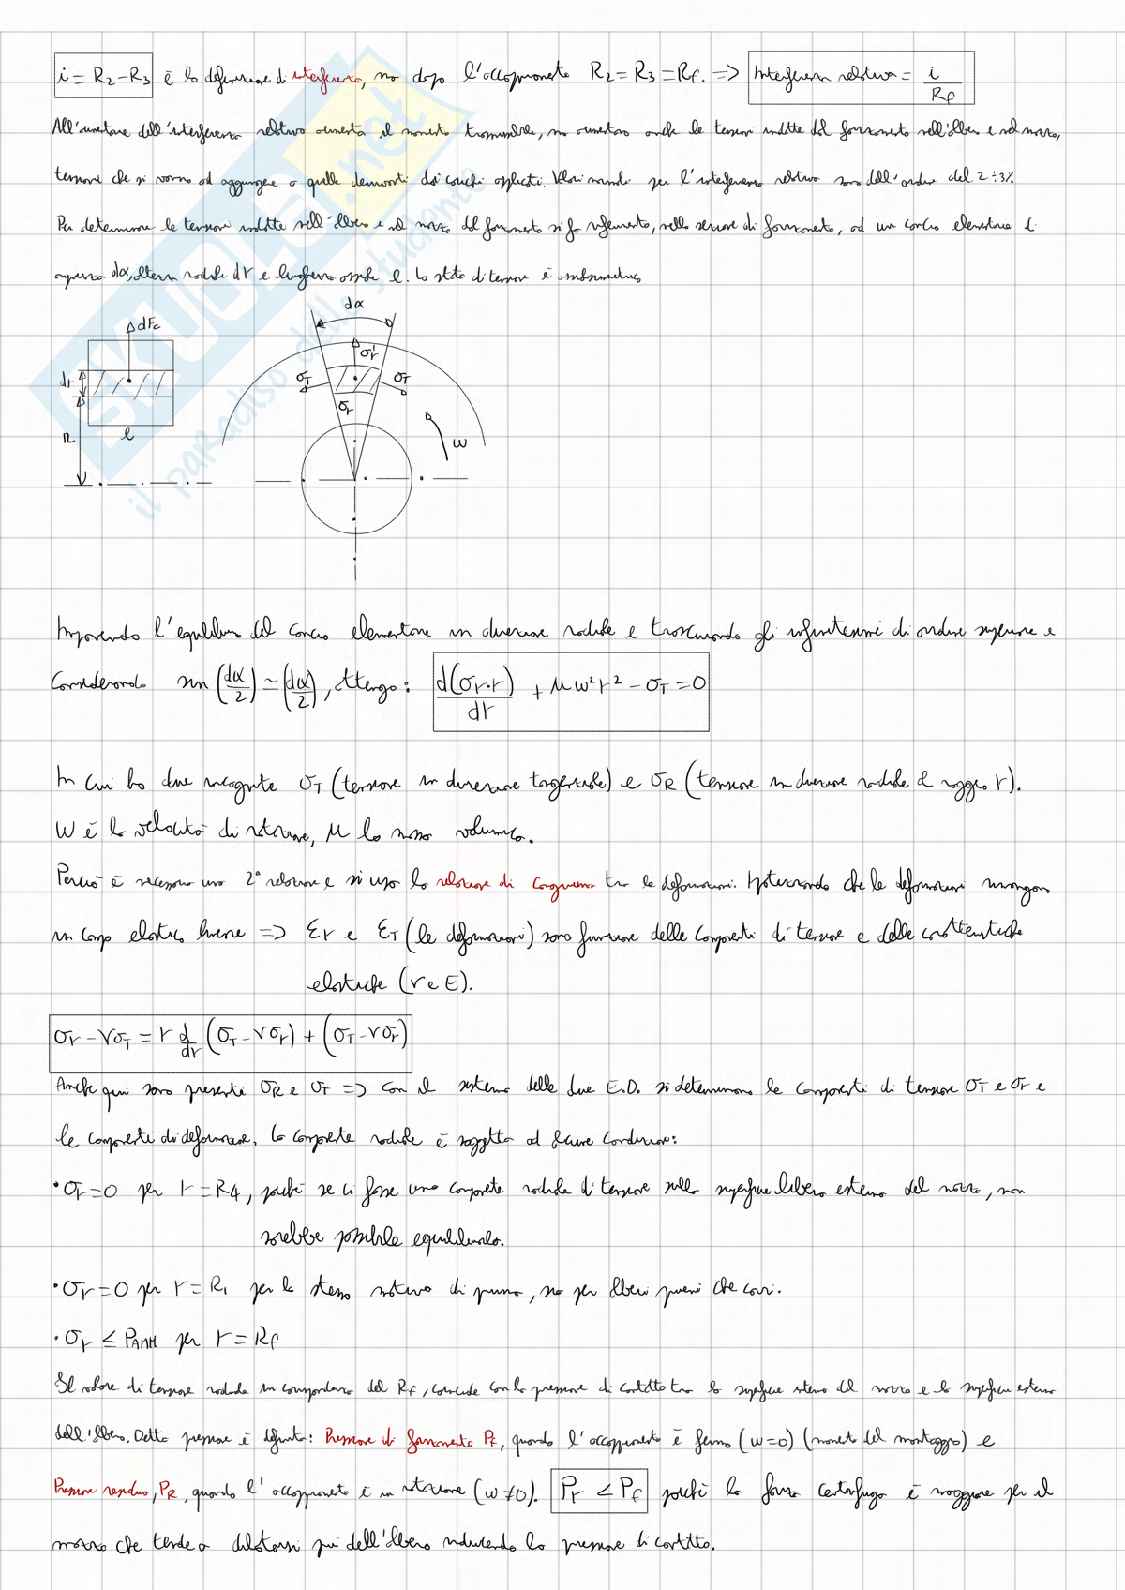 i = R₂-R₃ è la definizione di interferenza, ma dopo l'accoppiamento R₂ = R₃ = Rf. => Interferenza relativa = i/Rf
All'aumentare dell'interferenza relativa aumenta il momento trasmissibile, ma aumentano anche le tensioni indotte dal forzamento nell'albero e nel mozzo,
tensioni che si vanno ad aggiungere a quelle derivanti dai carichi applicati. Valori normali per l'interferenza relativa sono dell'ordine del 2÷3‰
Per determinare le tensioni indotte nell'albero e nel mozzo dal forzamento si fa riferimento, nella sezione di forzamento, ad un concio elementare di
apertura dα, altezza radiale dr e lunghezza assiale l. Lo stato di tensione è
dα
dFc
σr'
σT
σT
dr
σr
R
l
ω
SKUOLA.net
il paradiso dello studente
Imponendo l'equilibrio del concio elementare in direzione radiale e trascurando gli infinitesimi di ordine superiore e
Considerando sin(dα/2) ≃ (dα/2), ottengo: d(σr·r)/dr + μω²r² - σT = 0
In cui ho due incognite σT (tensione in direzione tangenziale) e σR (tensione in direzione radiale al raggio r).
ω è la velocità di rotazione, μ la massa volumica.
Perciò è necessaria una 2ª relazione e si usa la relazione di congruenza tra le deformazioni. Ipotizzando che le deformazioni rimangano
in campo elastico lineare => εr e εT (le deformazioni) sono funzione delle componenti di tensione e delle caratteristiche
elastiche (ν e E).
σr - νσT = r d/dr (σT - νσr) + (σT - νσr)
Anche qui sono presenti σR e σT => con il sistema delle due E.D. si determinano le componenti di tensione σT e σr e
le componenti di deformazione. La componente radiale è soggetta ad alcune condizioni:
• σr = 0 per r = R4, poiché se ci fosse una componente radiale di tensione sulla superficie libera esterna del mozzo, non
sarebbe possibile equilibrarla.
• σr = 0 per r = R₁ per lo stesso motivo di prima, sia per alberi pieni che cavi.
• σr ≤ PAMM per r = Rf
Il valore di tensione radiale in corrispondenza del Rf, coincide con la pressione di contatto tra la superficie interna del mozzo e la superficie esterna
dell'albero. Detta pressione è definita: Pressione di forzamento Pf, quando l'accoppiamento è fermo (ω=0) (momento del montaggio) e
Pressione residua, PR, quando l'accoppiamento è in rotazione (ω≠0). Pr < Pf poiché la forza centrifuga è maggiore per il
mozzo che tende a dilatarsi più dell'albero riducendo la pressione di contatto.